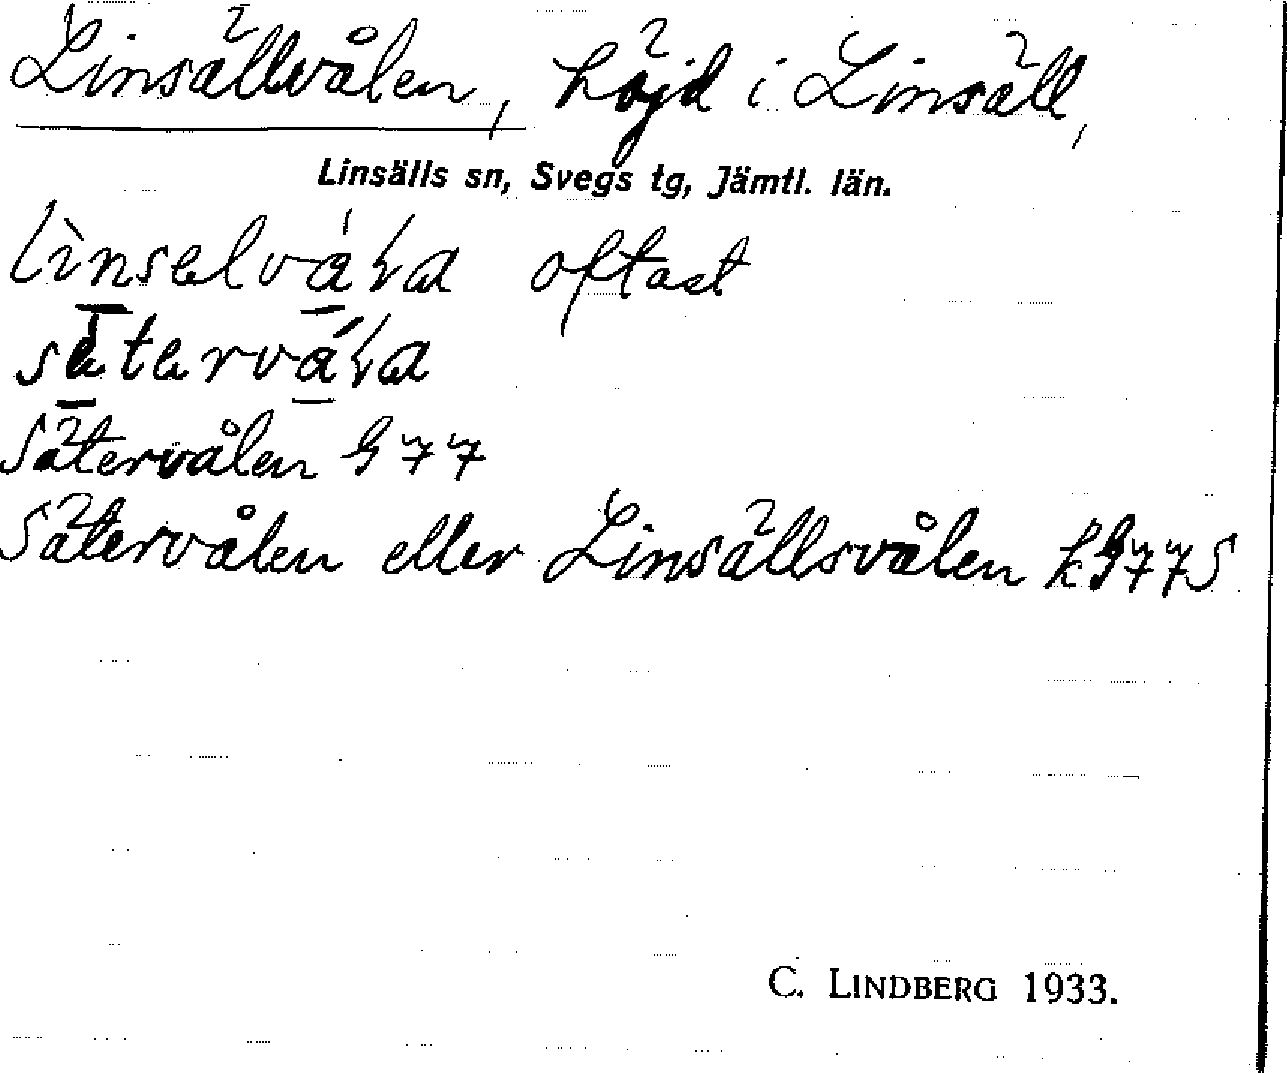 Linsällvålen, höjd i Linsäll,
Linsälls sn, Svegs tg, Jämtl. län.
oftast
Sätervålen G 77
Sätervålen eller Linsällsvålen k G 77 S
C. LINDBERG 1933.